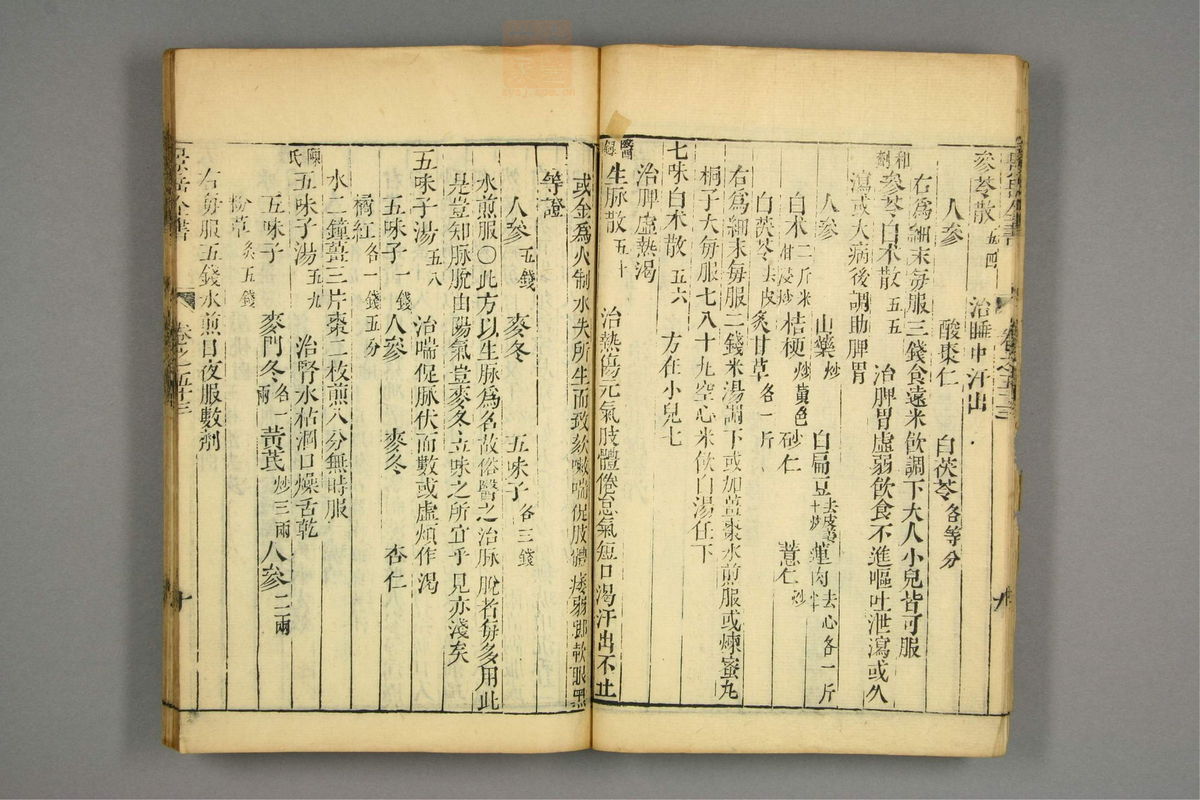 參苓散五四 治睡中汗出
人參 酸棗仁 白茯苓各等分
右爲細末每服三錢食遠米飲調下大人小兒皆可服
和劑參苓白朮散五五 治脾胃虛弱飲食不進嘔吐泄瀉或久
瀉或大病後調助脾胃
人參 山藥炒 白扁豆去皮薑汁炒 蓮肉去心各一斤半
白朮二斤米泔浸炒 桔梗炒黃色 砂仁 薏仁炒
白茯苓去皮 炙甘草各一斤
右爲細末每服二錢米湯調下或加薑棗水煎服或煉蜜丸
桐子大每服七八十丸空心米飲白湯任下
七味白朮散五六 方在小兒七
治脾虛熱渴
醫錄生脉散五七 治熱傷元氣肢體倦怠氣短口渴汗出不止
或金爲火制水失所生而致欬嗽喘促肢體痿弱脚軟眼黑
等證
人參五錢 麥冬 五味子各三錢
水煎服〇此方以生脉爲名故俗醫之治脉脫者每多用此
是豈知脉脫由陽氣豈麥冬五味之所宜乎見亦淺矣
五味子湯五八 治喘促脉伏而數或虛煩作渴
五味子一錢 人參 麥冬 杏仁
橘紅各一錢五分
水二鐘薑三片棗二枚煎八分無時服
陳氏五味子湯五九 治腎水枯涸口燥舌乾
五味子 麥門冬各一兩 黃芪炒三兩 人參二兩
粉草炙五錢
右每服五錢水煎日夜服數劑
景岳全書 卷之五十三 十